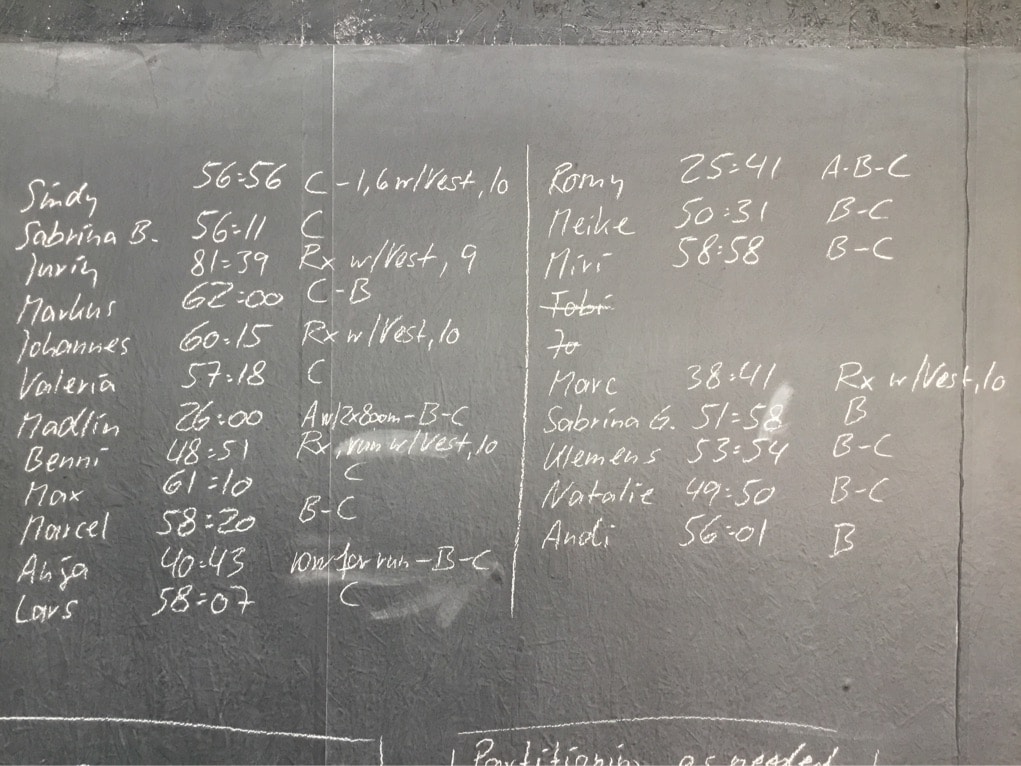 Sindy 56:56 C-1,6 w/Vest, 10
Sabrina B. 56:11 C
81:39 Rx w/Vest, 9
Markus 62:00 C-B
Johannes 60:15 Rx w/Vest, 10
Valeria 57:18 C
Madlin 26:00 A w/2x800m-B-C
Benni 48:51 Rx, run w/Vest, 10
Max 61:10 C
Marcel 58:20 B-C
Anja 40:43 row for run-B-C
Lars 58:07 C
Romy 25:41 A-B-C
Meike 50:31 B-C
Miri 58:58 B-C
Tobi
Jo
Marc 38:41 Rx w/Vest, 10
Sabrina G. 51:58 B
Klemens 53:54 B-C
Natalie 49:50 B-C
Andi 56:01 B
as needed